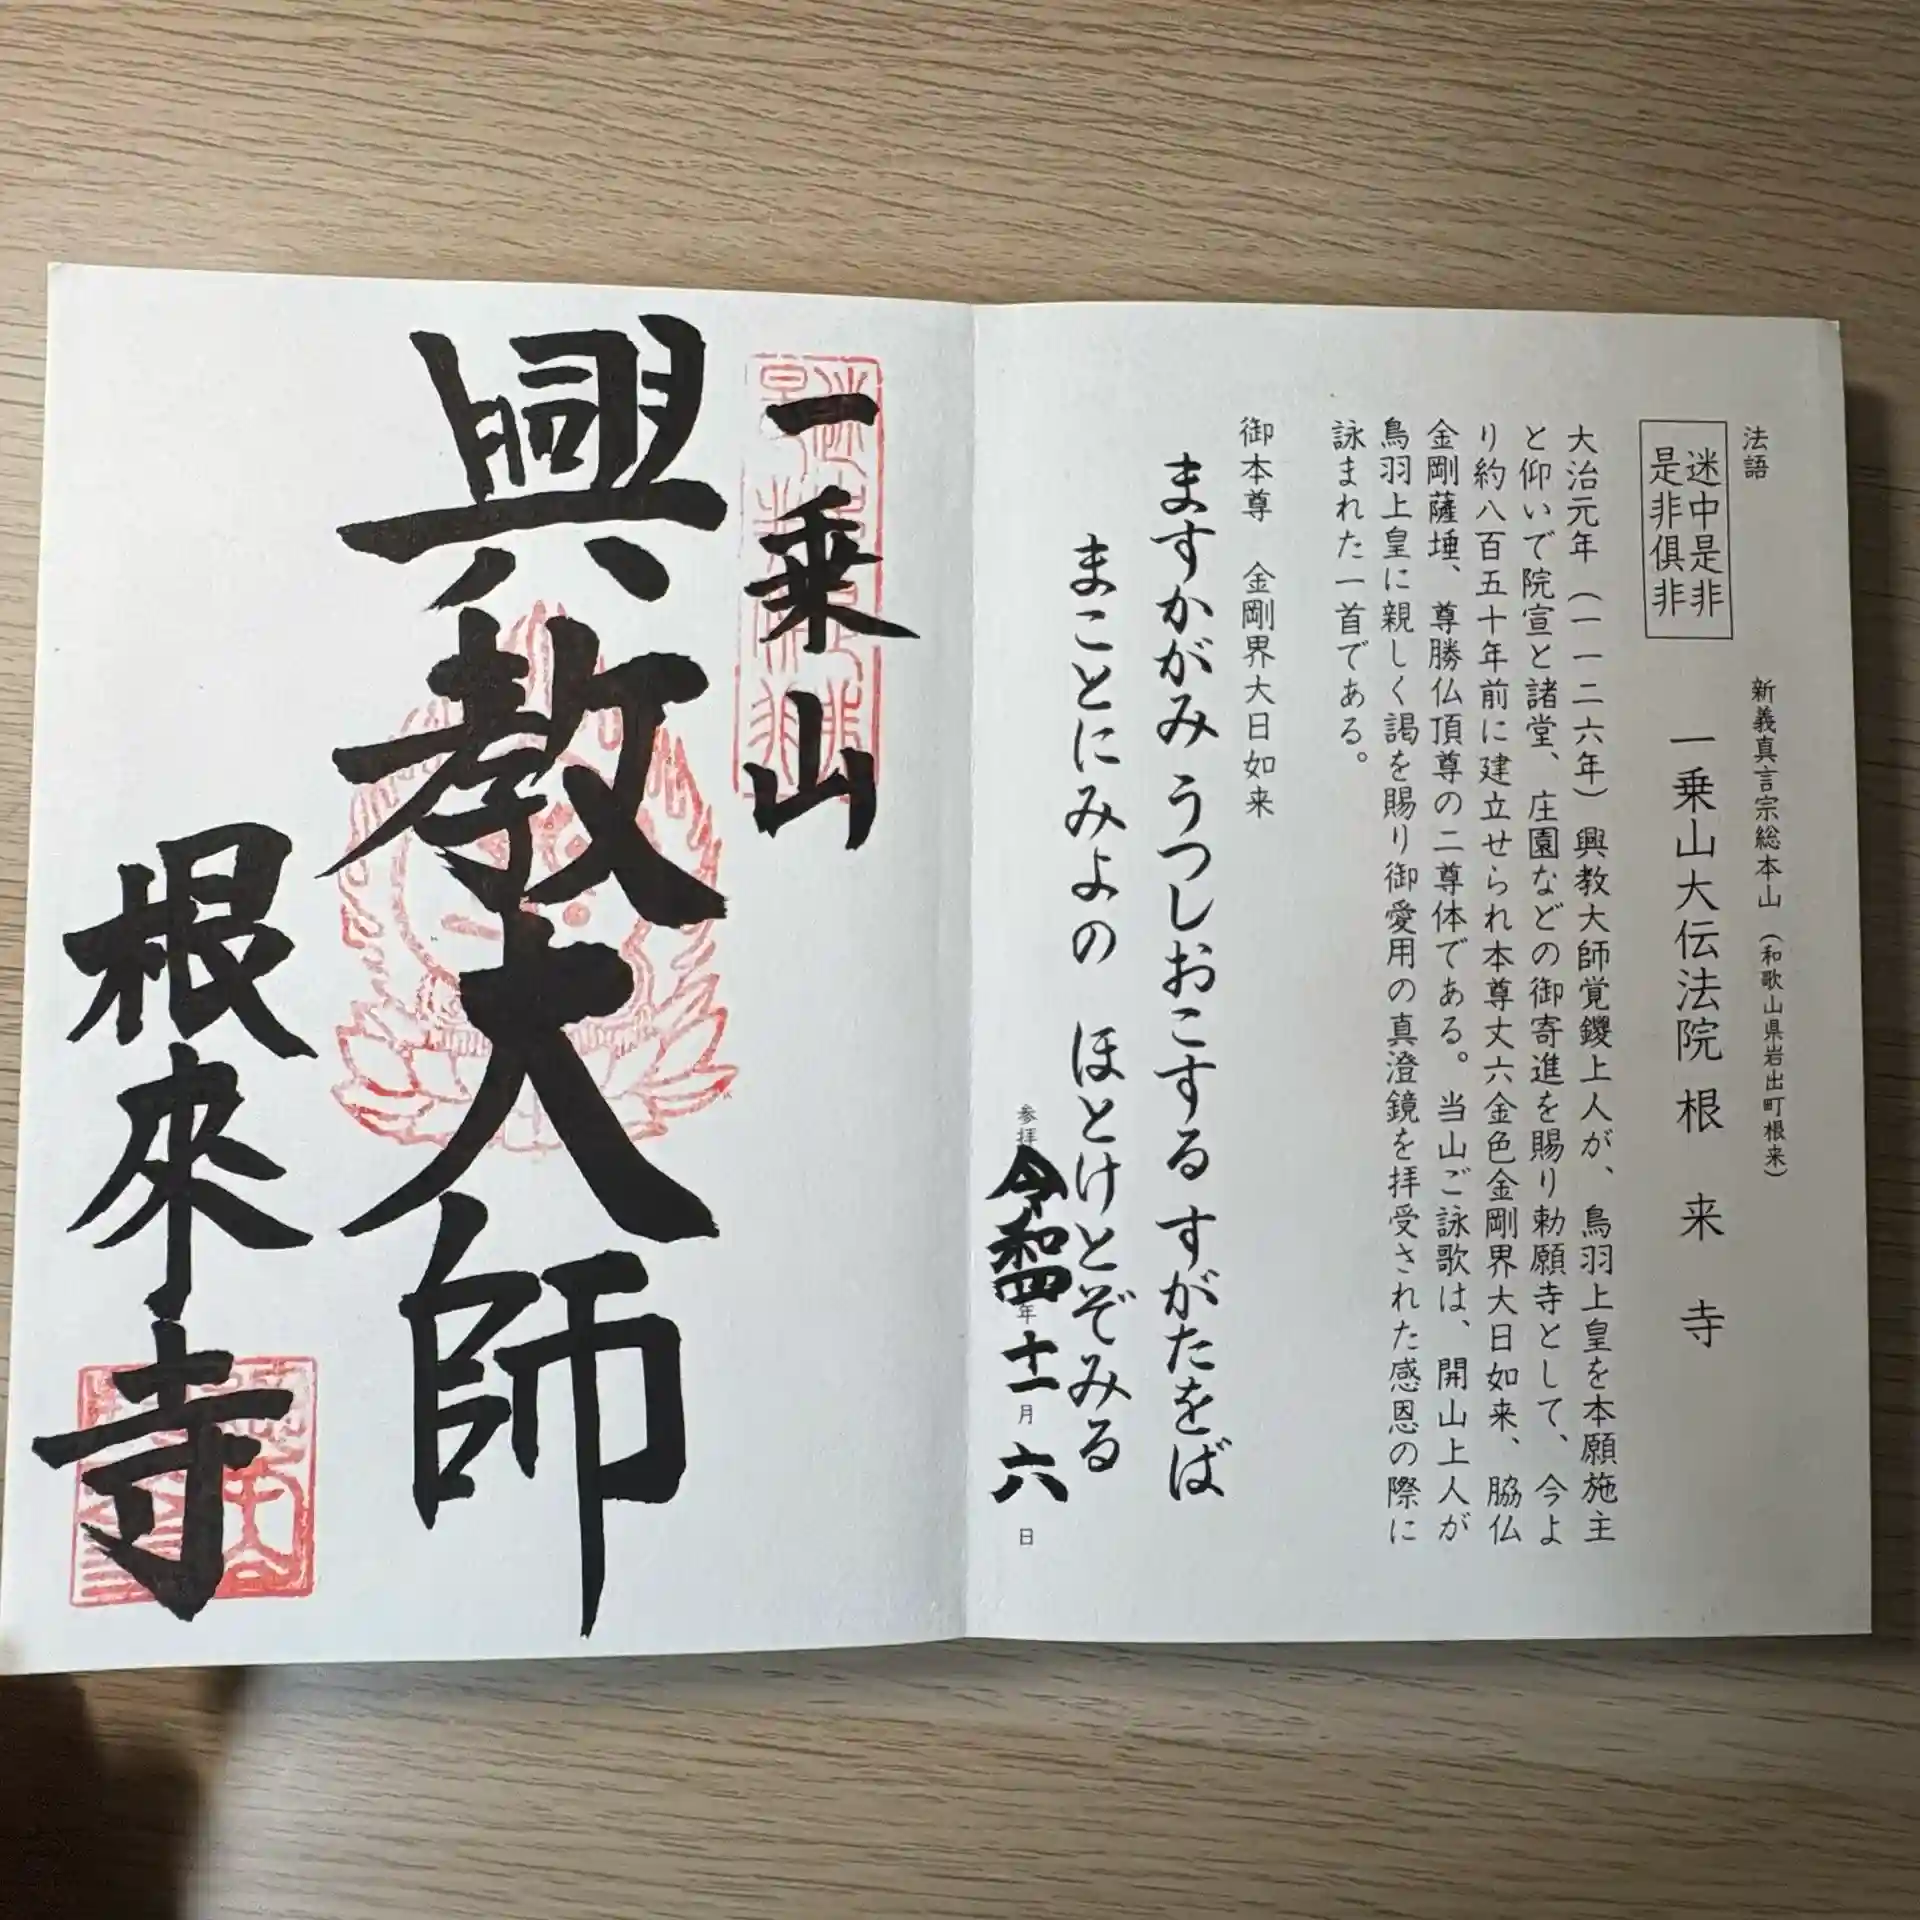 法語
迷中是非
是非俱非
新義真言宗総本山（和歌山県岩出町根来）
一乗山大伝法院 根来寺
大治元年（一一二六年）興教大師覚鑁上人が、鳥羽上皇を本願施主
と仰いで院宣と諸堂、庄園などの御寄進を賜り勅願寺として、今よ
り約八百五十年前に建立せられ本尊丈六金色金剛界大日如来、脇仏
金剛薩埵、尊勝仏頂尊の二尊体である。当山ご詠歌は、開山上人が
鳥羽上皇に親しく謁を賜り御愛用の真澄鏡を拝受された感恩の際に
詠まれた一首である。
御本尊 金剛界大日如来
ますかがみ うつしおこする すがたをば
まことにみよの ほとけとぞみる
参拝 令和四年十一月六日
一乗山
興教大師
根來寺